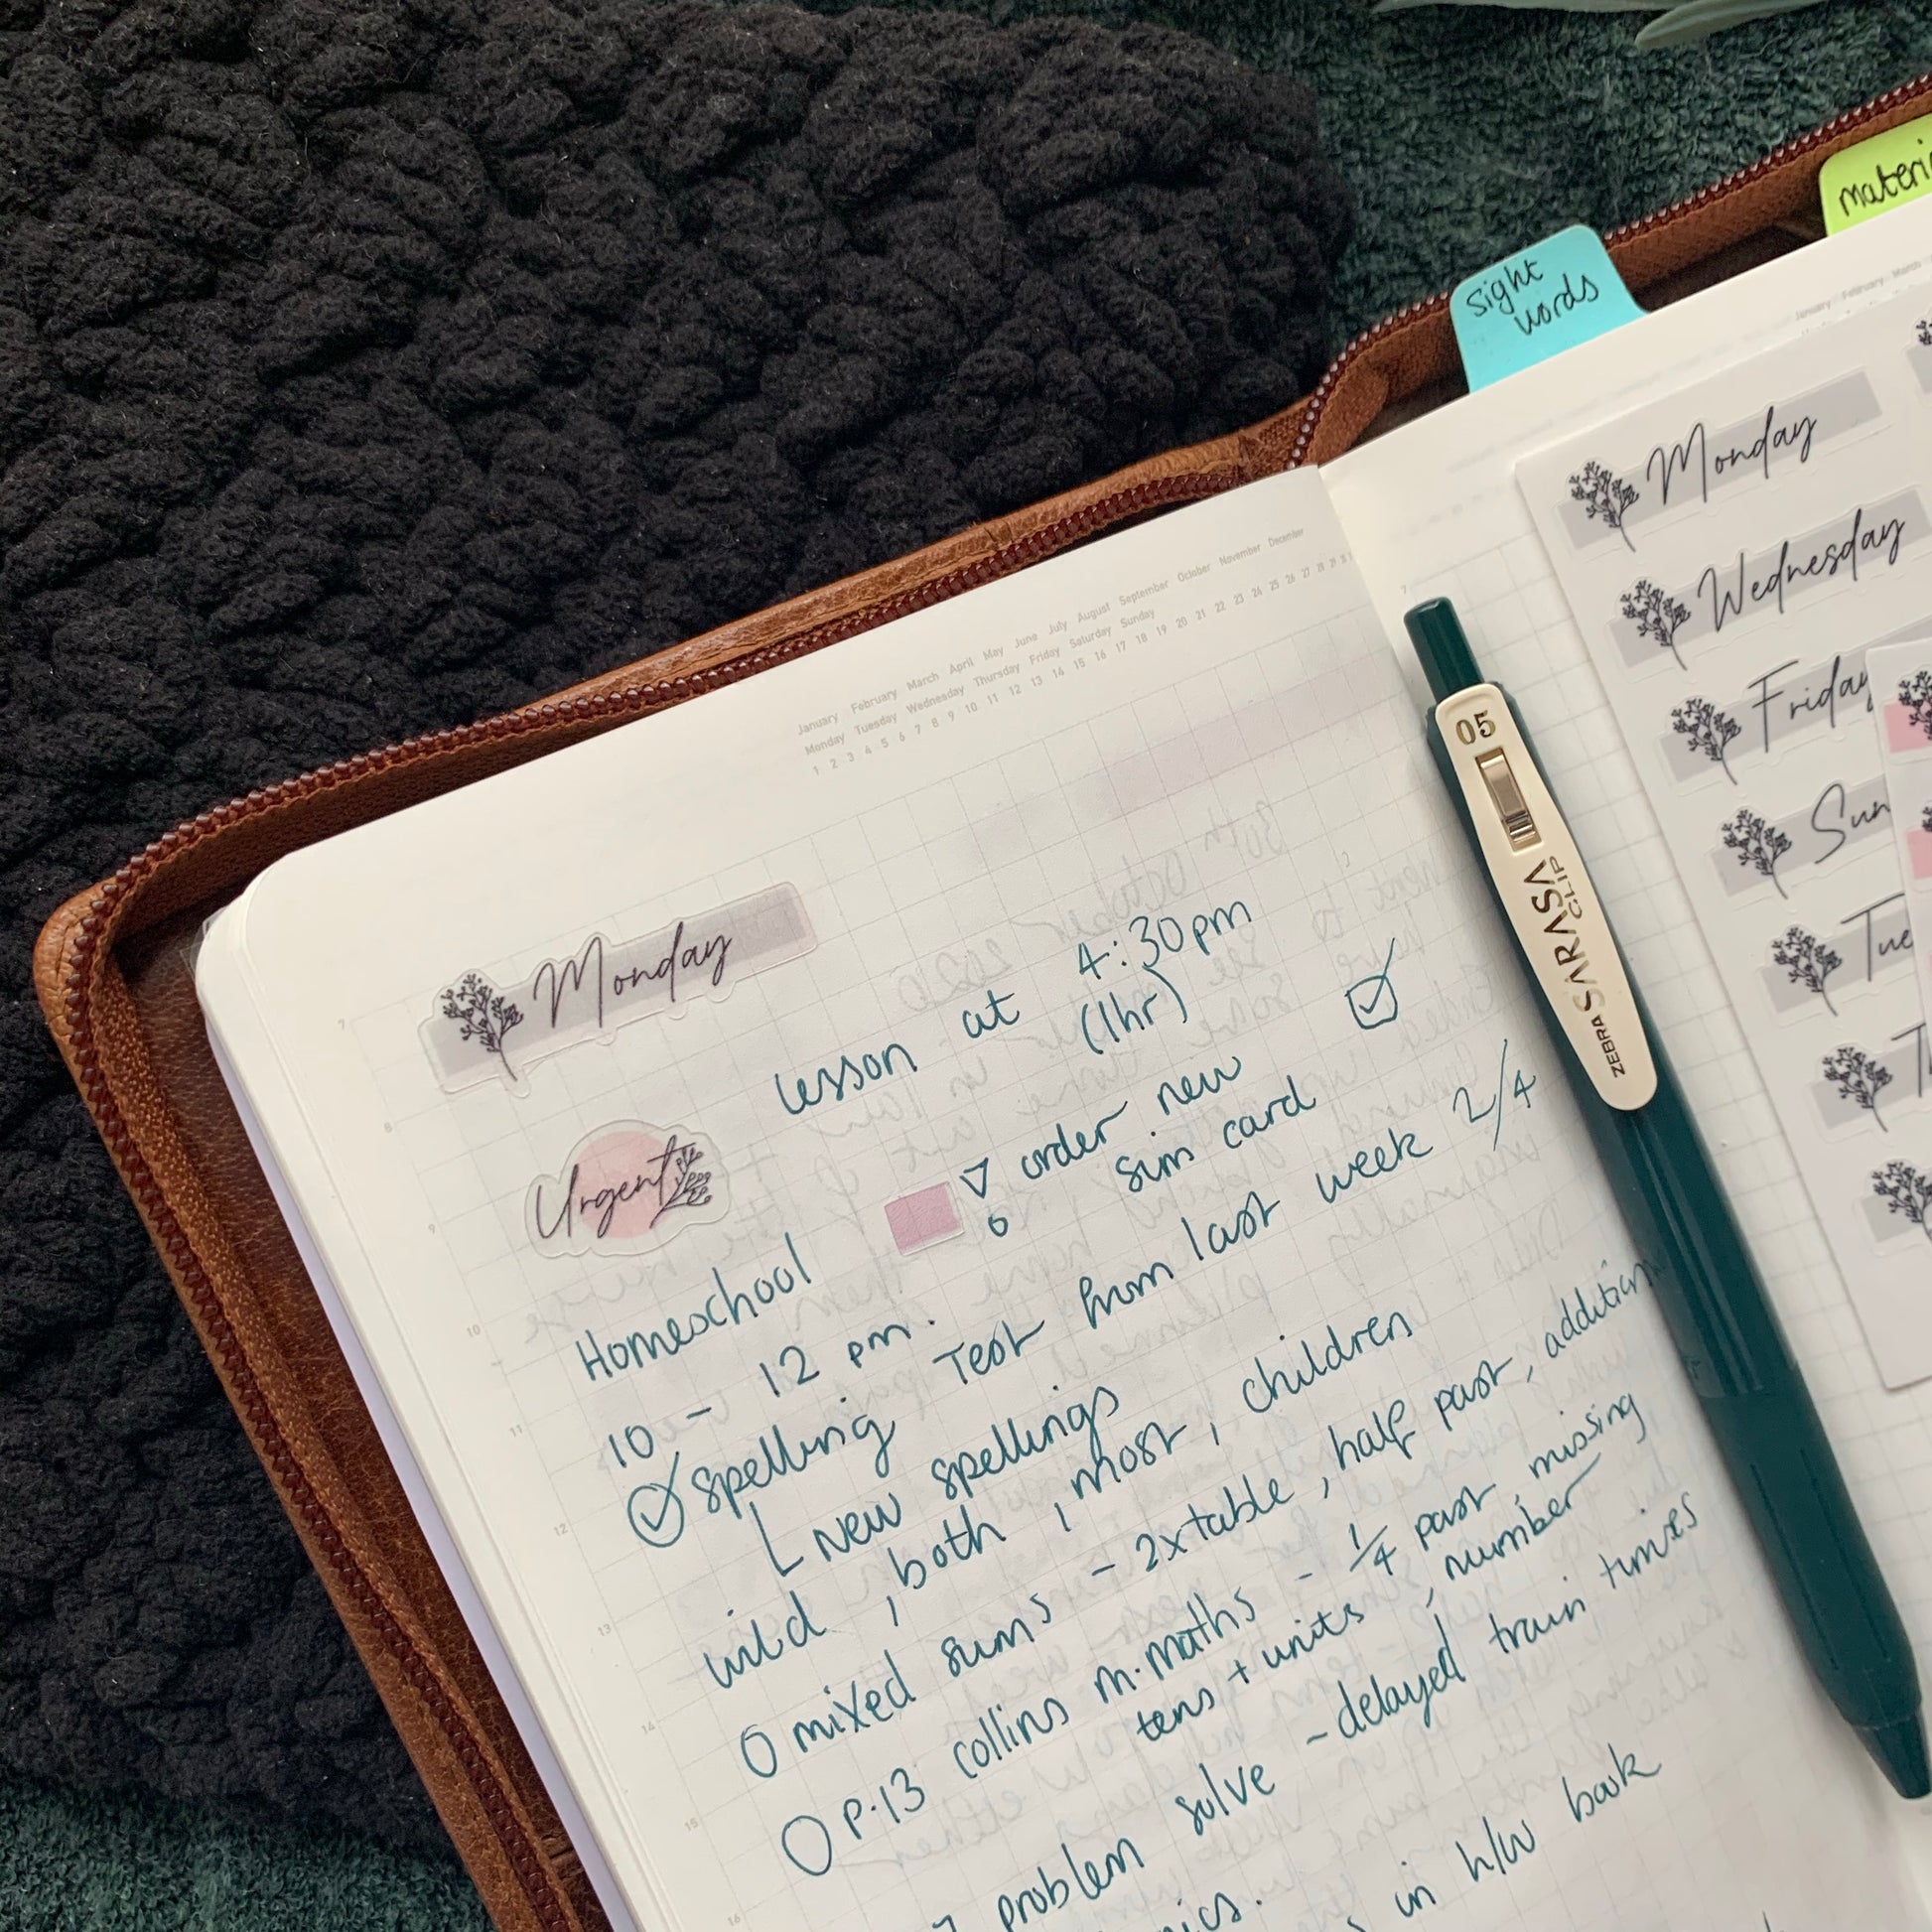 sight
words
January February March April May June July August September October November December
Monday Tuesday Wednesday Thursday Friday Saturday Sunday
1 2 3 4 5 6 7 8 9 10 11 12 13 14 15 16 17 18 19 20 21 22 23 24 25 26 27 28 29 30
Monday
lesson at 4:30pm
(1hr)
Urgent
order new
sim card
Homeschool
10 - 12 pm.
spelling Test from last week 2/4
New spellings
wild, both, most, children
mixed sums - 2x table, half past, addition
P.13 collins m.maths - 1/4 past, missing
tens + units, number
problem solve - delayed train times
in h/w book
7
8
9
10
11
12
13
14
15
16
05
ZEBRA SARASA
CLIP
January February March
7
Monday
Wednesday
Friday